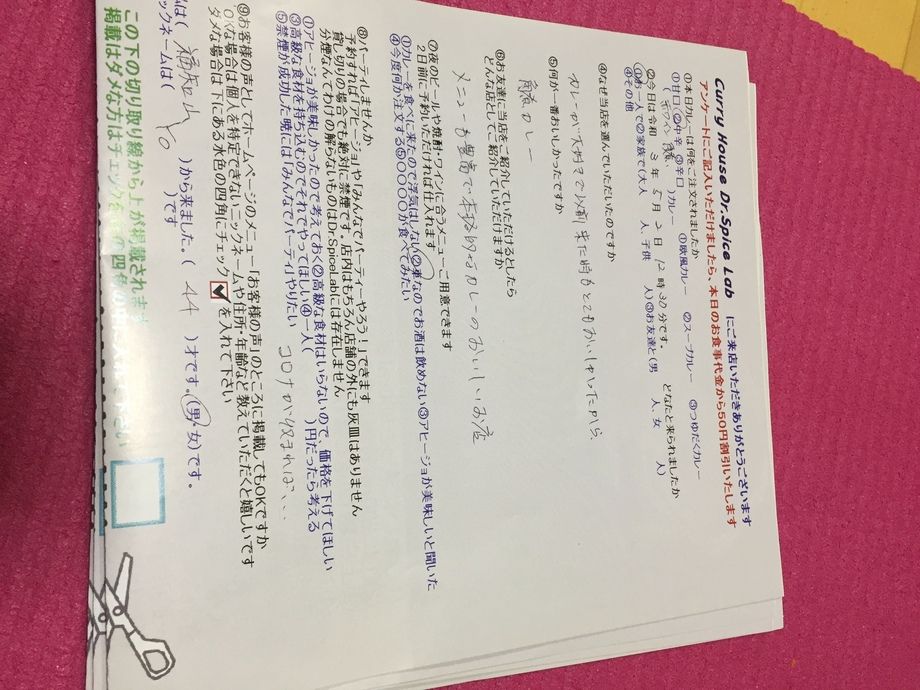 Curry House Dr.Spice Lab にご来店いただきありがとうございます
アンケートにご記入いただけましたら、本日のお食事代金から50円割引いたします
①本日カレーは何をご注文されましたか
①甘口②中辛 ③辛口 ①欧風カレー ②スープカレー ③つゆだくカレー
)カレー
②今日は 令和 3 年 5 月 2 日 12 時 30 分です。 どなたと来られましたか
①お一人で②家族で(大人 人、子供 人)③お友達と(男 人、女 人)
④その他
④なぜ当店を選んでいただいたのですか
カレーが大好きで以前来た時もとてもおいしかったから
⑤何が一番おいしかったですか
カレー
⑥お友達に当店をご紹介していただけるとしたら
どんな店としてご紹介していただけますか
メニューも豊富で、本格的なカレーのおいしいお店
⑦夜のビールや焼酎・ワインに合うメニューご用意できます
2日前に予約いただければ仕入れます
①カレーを食べに来たので浮気はしない②車なのでお酒は飲めない③アヒージョが美味しいと聞いた
④今度何か注文する⑤〇〇〇〇が食べてみたい
⑧パーテしませんか
予約すれば「アヒージョ」や「みんなでパーティーやろう！」できます
貸し切りの場合でも絶対に禁煙です。店内はもちろん店舗の外にも灰皿はありません
分煙なんてわけの解らないものはDr.SpiceLabには存在しません
①アヒージョが美味しかったので考えておく②高級な食材はいらないので、価格を下げてほしい
③高級な食材を持ち込むのでそれでやってほしい④一人( )円だったら考える
⑤禁煙が成功した暁には「みんなでパーティ」やりたい コロナが収まれば、、、
⑨お客様の声としてホームページのメニュー「お客様の声」のところに掲載してもOKですか
OKな場合は個人を特定できないニックネームや住所・年齢など教えていただくと嬉しいです
ダメな場合は下にある水色の四角にチェック を入れて下さい
は( 福知山 )から来ました。( 44 )才です。(男・女)です。
ックネームは( )です
この下の切り取り線から上が掲載されます
掲載はダメな方はチェック